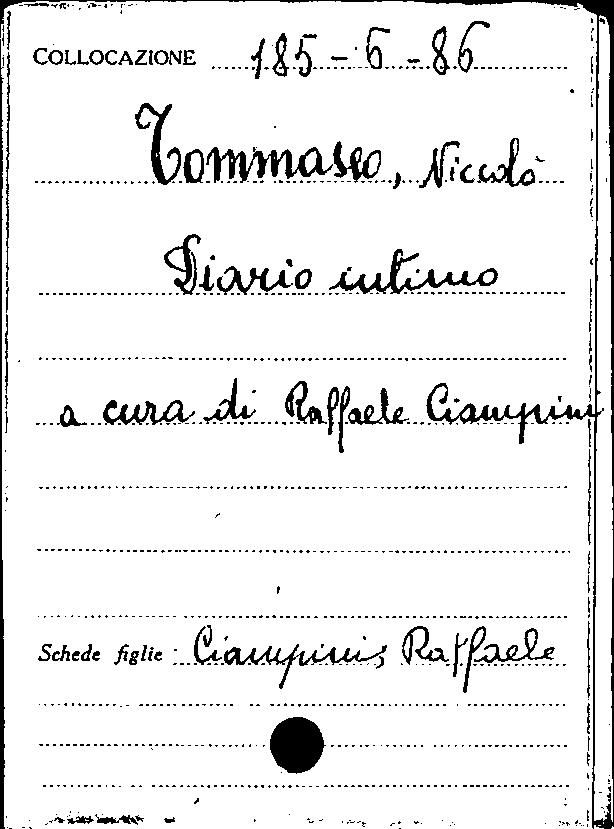 COLLOCAZIONE 185-6-86
Tommaseo, Niccolò
Diario intimo
a cura di Raffaele Ciampini
Schede figlie Ciampini, Raffaele